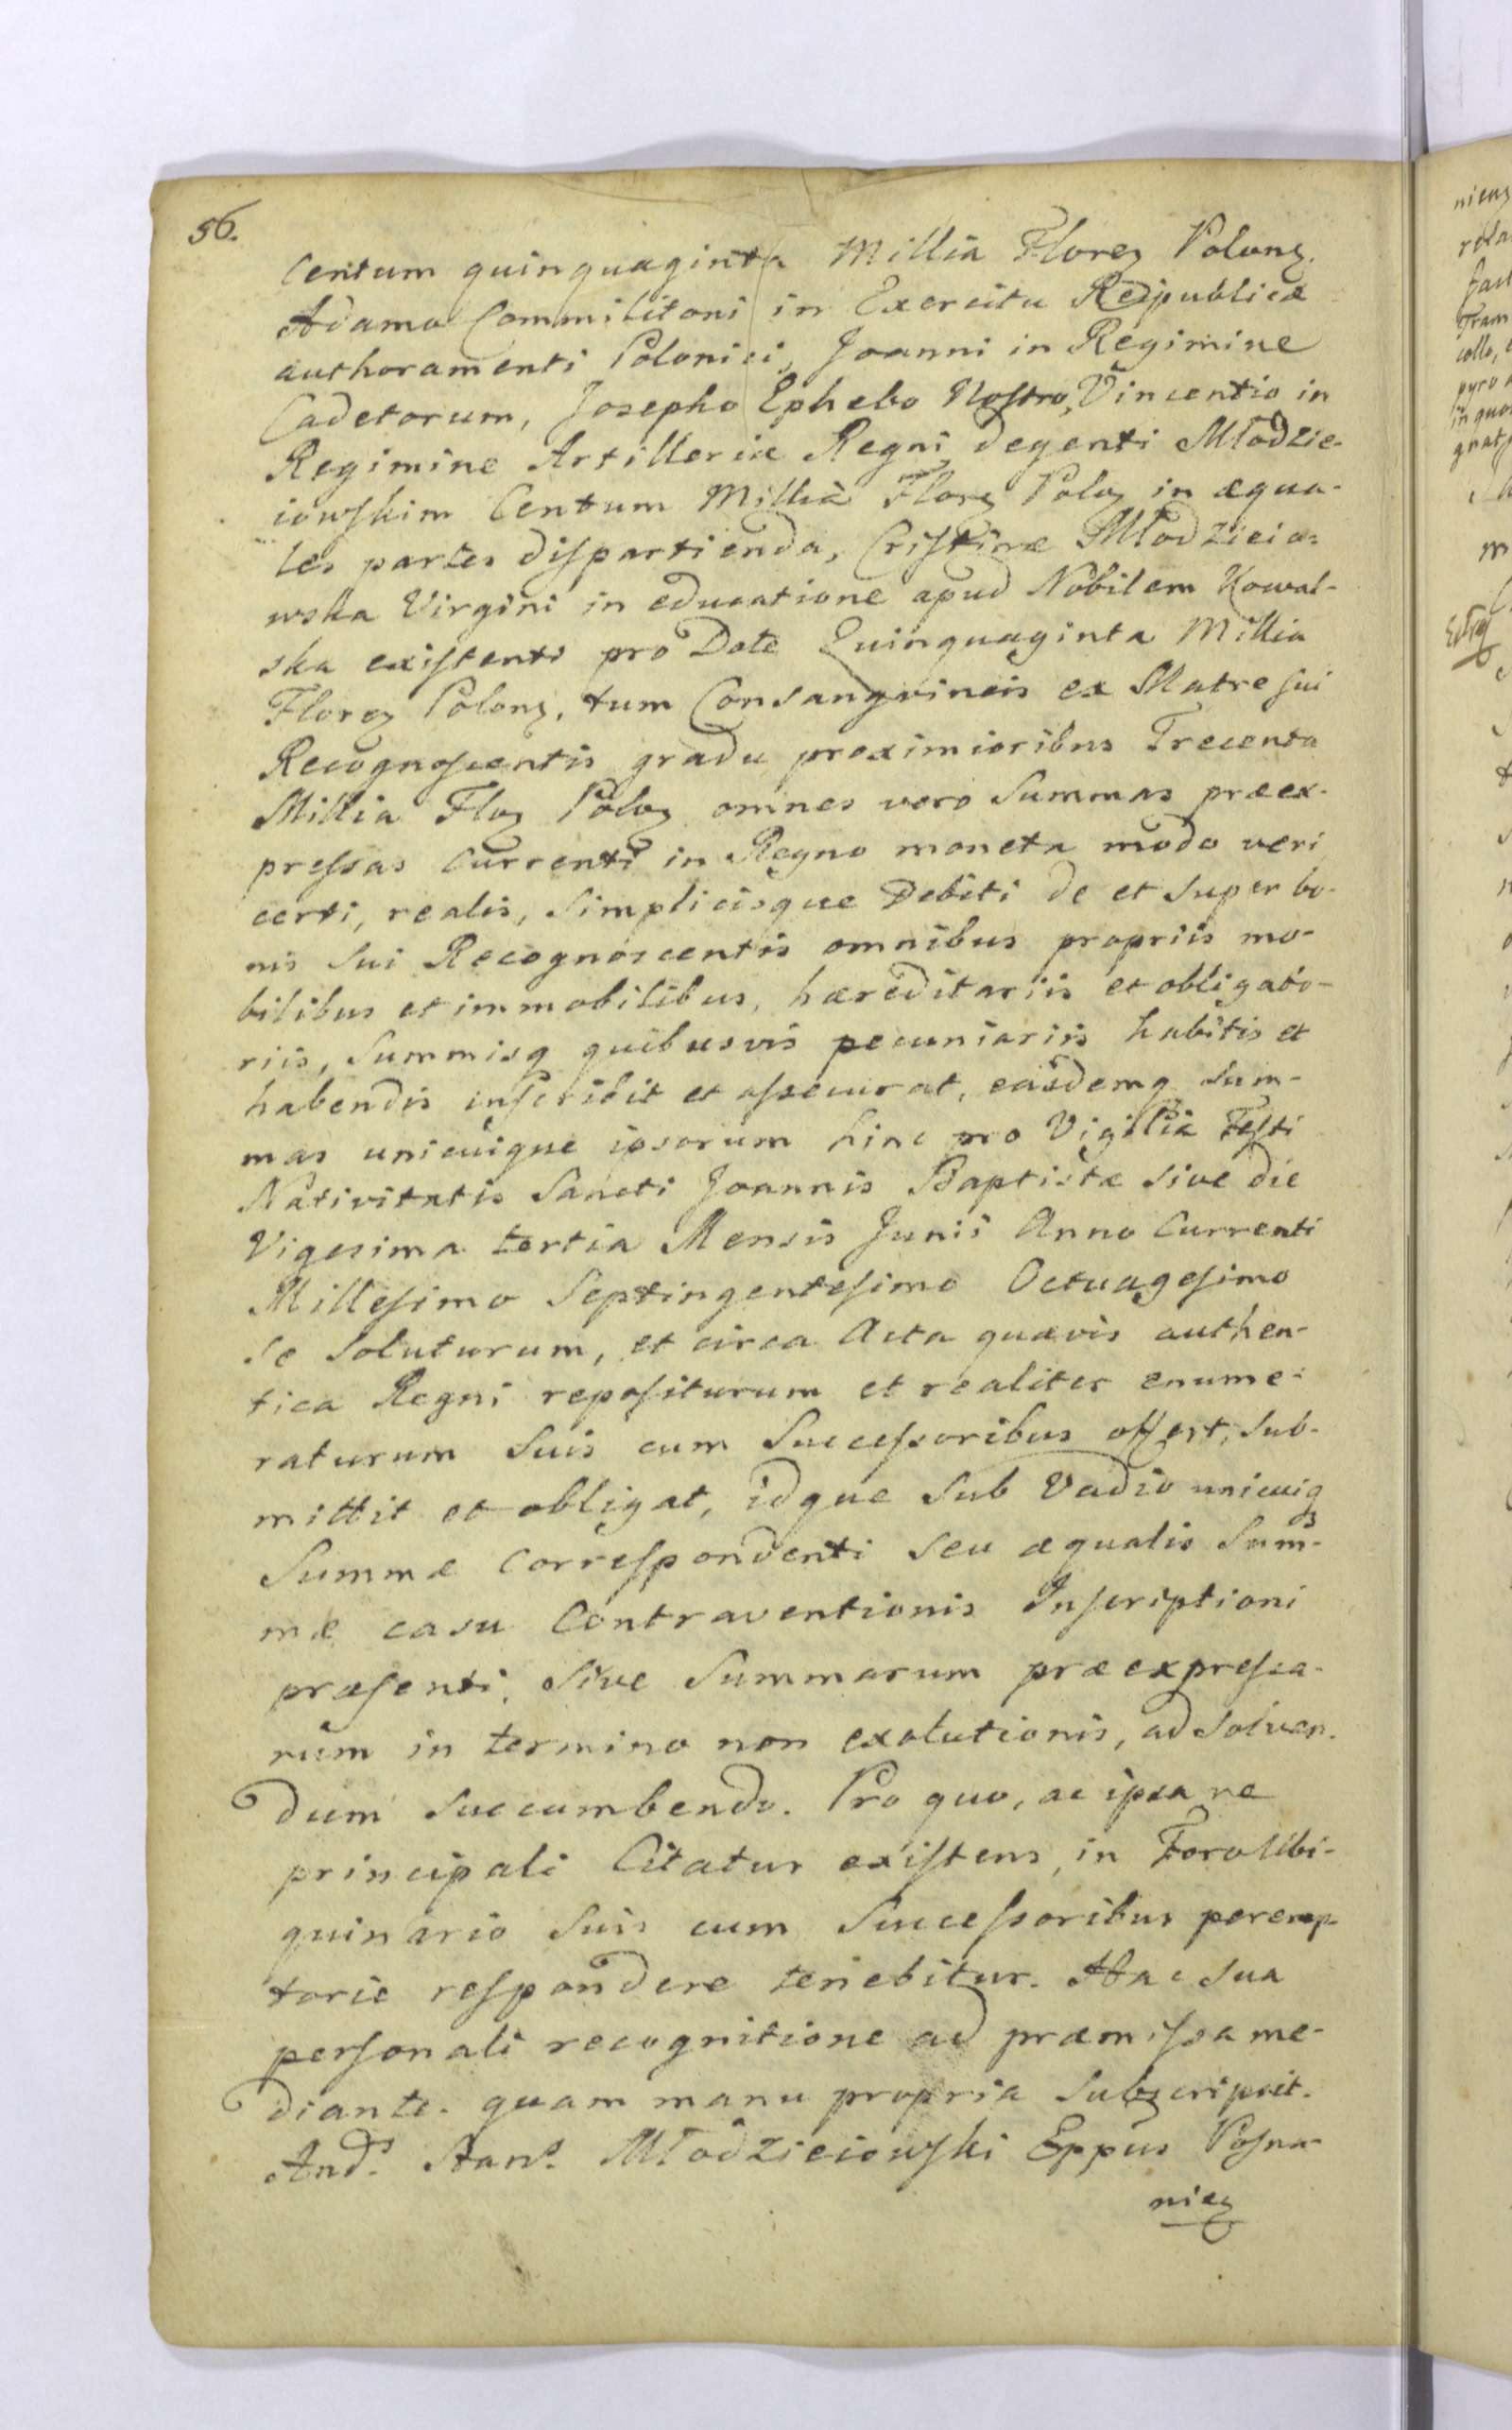 56.
Centum quinquaginta Millia Florez Polonz.
Adamo Commilitoni in Exercitu Reipublicæ
authoramenti Polonici, Joanni in Regimine
Cadetorum, Josepho Ephebo Nostro, Vincentio in
Regimine Artilleriæ Regni degenti Młodzie-
iowskim Centum Millia Florz Poloz in æqua-
les partes dispartienda, Cristinæ Młodzieio-
wska Virgini in educatione apud Nobilem Kowal-
ska existenti pro Dote Quinquaginta Millia
Florez Polonz, tum Consangvineis ex Matre sui
Recognoscentis gradu proximioribus Trecenta
Millia Floz Poloz omnes vero Summas præex-
pressas Currenti in Regno moneta modo veri
certi, realis, simplicisque Debiti de et super bo-
nis sui Recognoscentis omnibus propriis mo-
bilibus et immobilibus, hæreditariis et obligato-
riis, Summisq quibusvis pecuniariis habitis et
habendis inscribit et assecurat, easdemq sum-
mas unicuique ipsorum hinc pro Vigilia Festi
Nativitatis Sancti Joannis Baptistæ sive die
Vigesima tertia Mensis Junii Anno Currenti
Millesimo Septingentesimo Octuagesimo
se soluturum, et circa Acta quævis authen-
tica Regni repositurum et realiter enume-
raturum suis cum Successoribus offert, sub-
mittit et obligat, idque sub Vadio unicuiq
Summæ Correspondenti seu æqualis Sum-
mæ casu Contraventionis Inscriptioni
præsenti, sive Summarum præexpressa-
rum in termino non exolutionis, ad solven-
dum succumbendo. Pro quo, ac ipsa re
principali Citatus existens, in Foro Ubi-
quinario suis cum Successoribus peremp-
torie respondere tenebitur. Hac sua
personali recognitione ad præmissa me-
diante. quam manu propria subscripsit.
Andˢ. Stanˢ. Młodzieiowski Eppus Posna-
niez